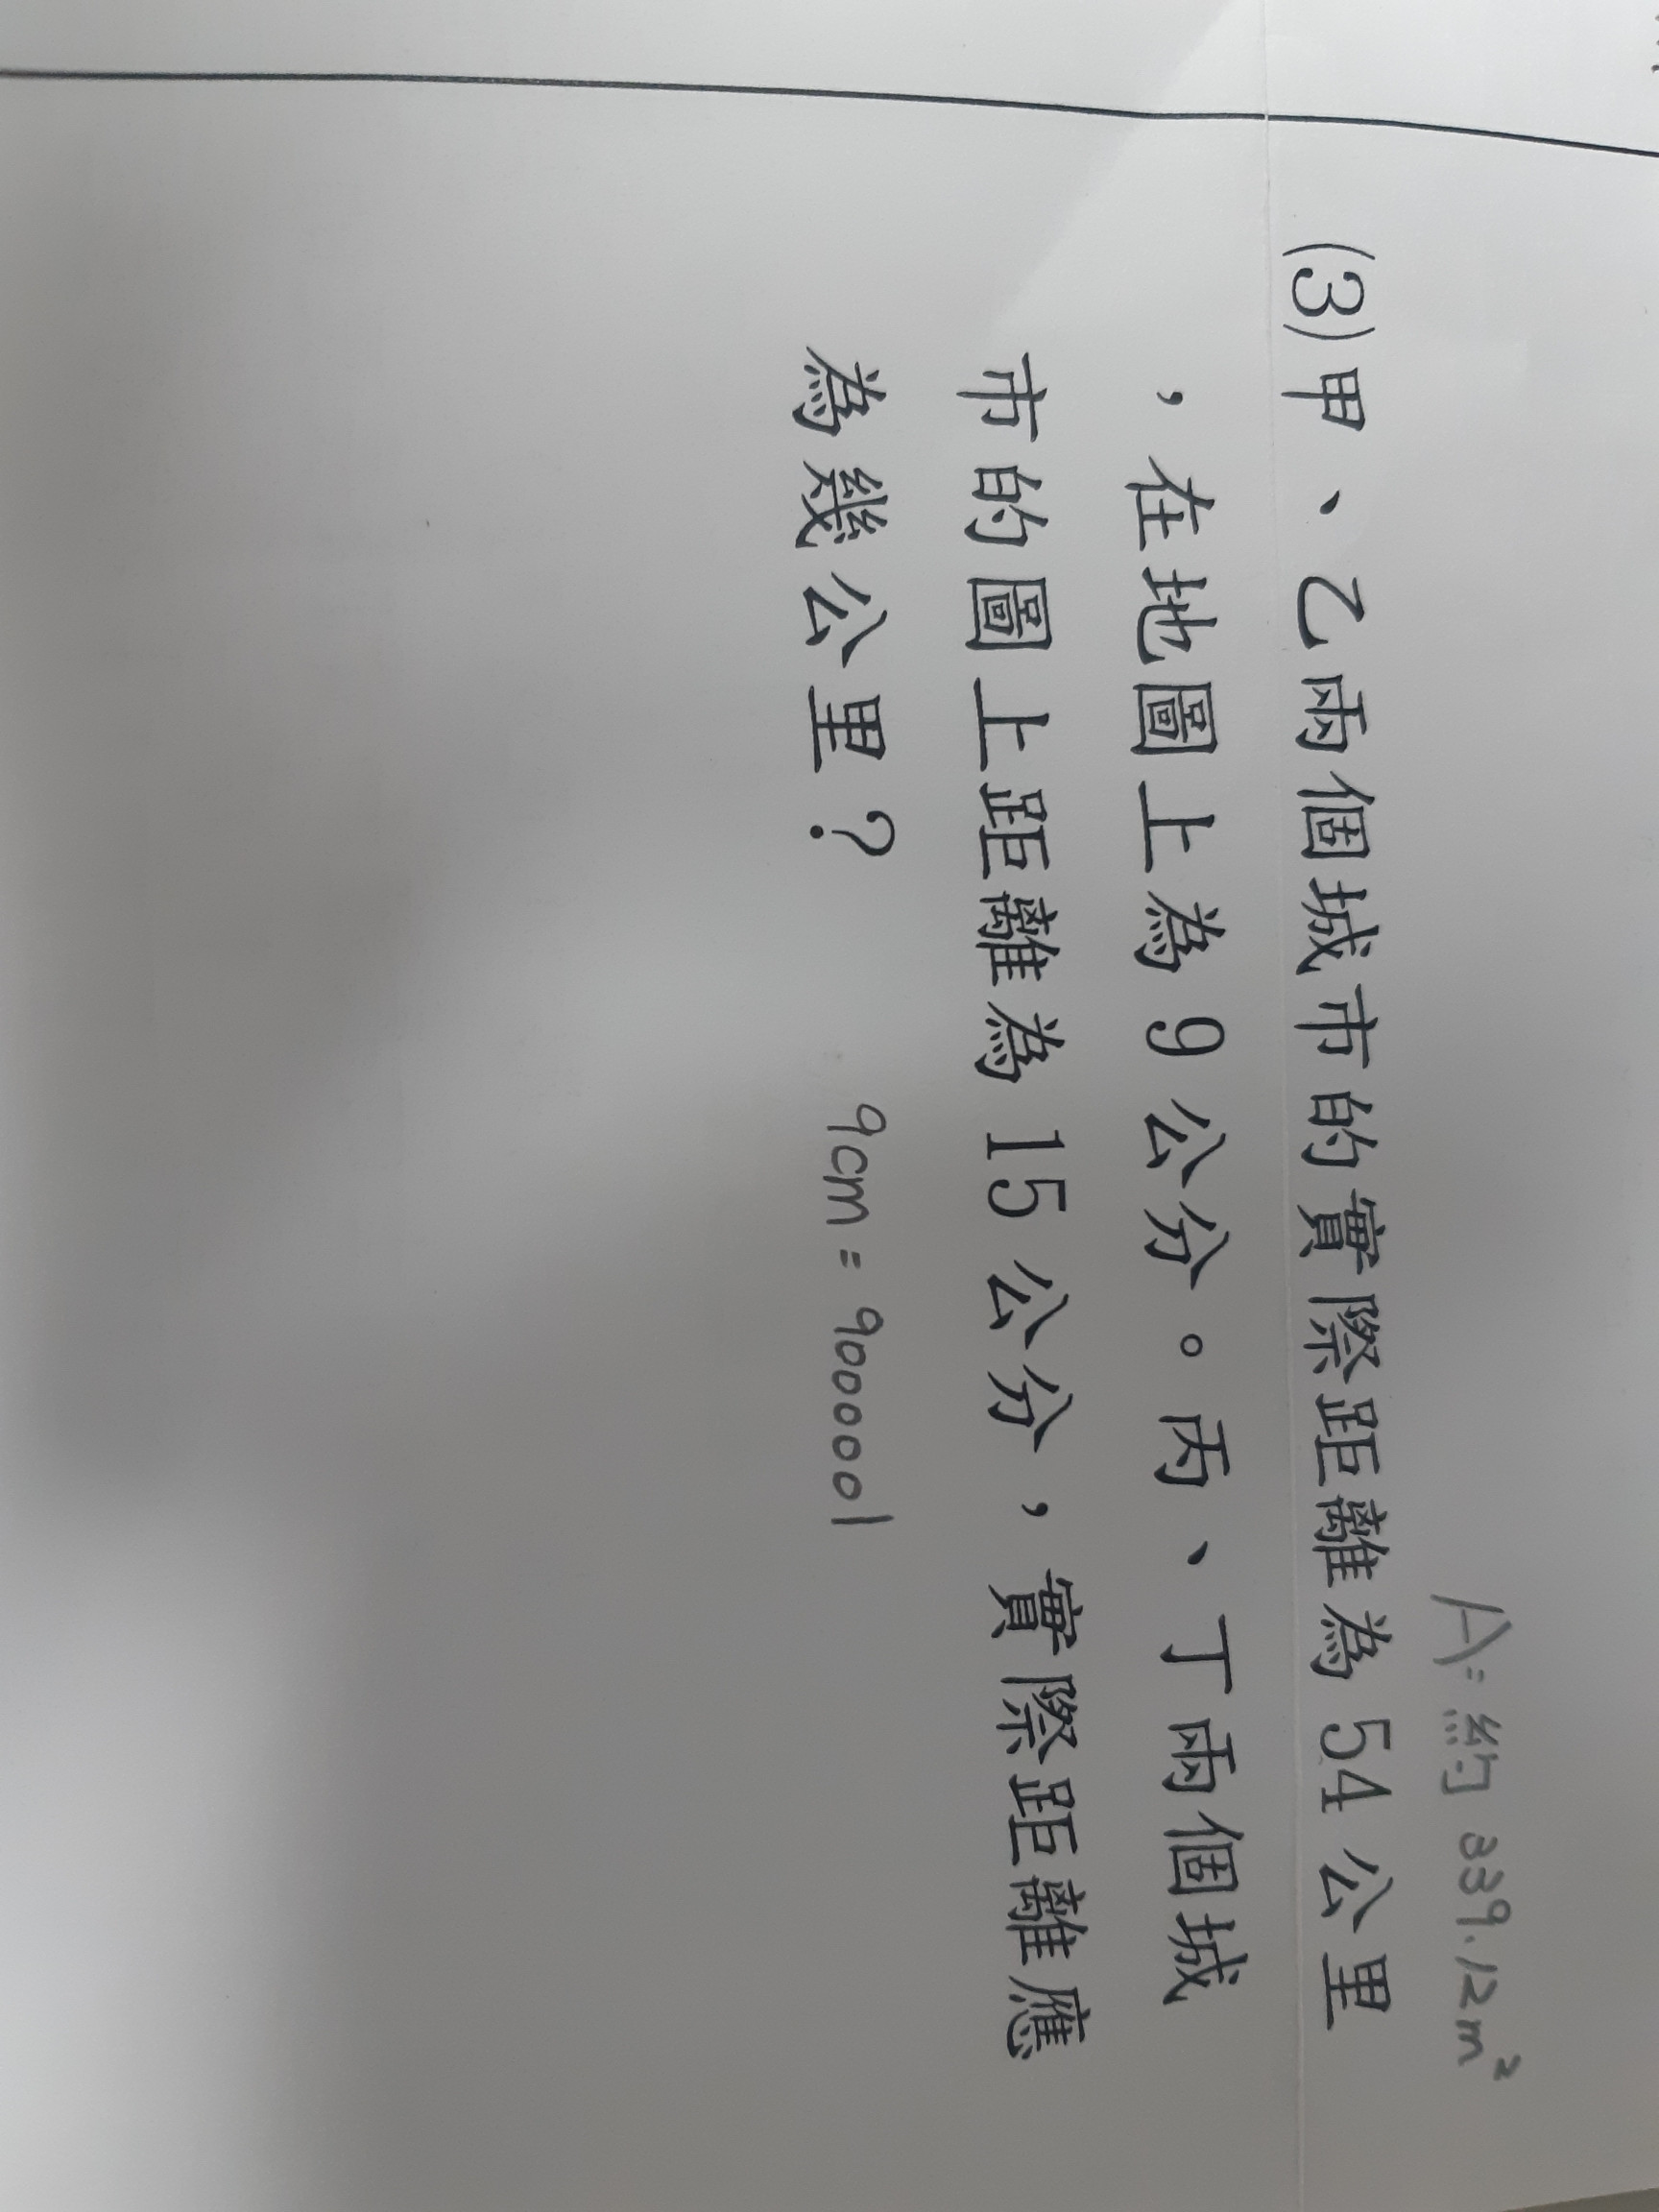 A：約 339.12m²
(3)甲、乙兩個城市的實際距離為 54 公里
，在地圖上為 9 公分。丙、丁兩個城
市的圖上距離為 15 公分，實際距離應
為幾公里？
9cm = 900001